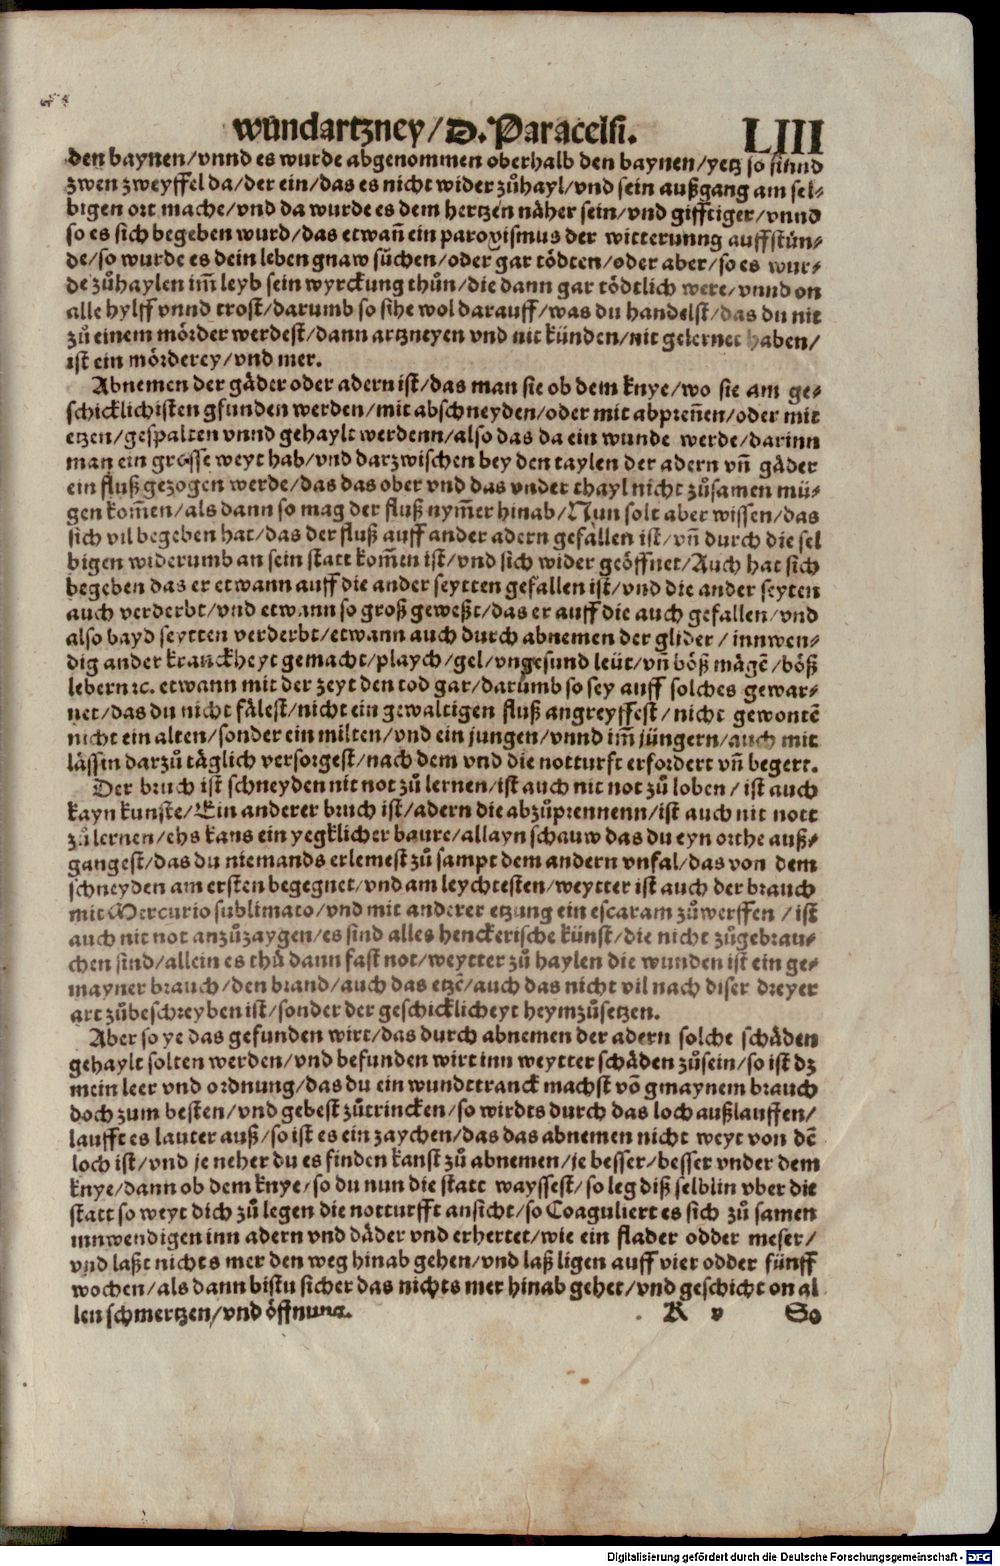 wundartzney/D. Paracelsi. LIII
den baynen/vnnd es wurde abgenommen oberhalb den baynen/yetz so sinnd
zwen zweyffel da/der ein/das es nicht wider zůhayl/vnd sein außgang am sel-
bigen ort mache/vnd da wurde es dem hertzen näher sein/vnd gifftiger/vnnd
so es sich begeben wurd/das etwañ ein paroxismus der witterunng auffstůn-
de/so wurde es dein leben gnaw sůchen/oder gar tödten/oder aber/so es wur-
de zůhaylen im̃ leyb sein wyrckung thůn/die dann gar tödtlich were/vnnd on
alle hylff vnnd trost/darumb so sihe wol darauff/was du handelst/das du nit
zů einem mörder werdest/dann artzneyen vnd nit künden/nit gelernet haben/
ist ein mörderey/vnd mer.
Abnemen der gäder oder adern ist/das man sie ob dem knye/wo sie am ge-
schicklichisten gfunden werden/mit abschneyden/oder mit abpreñen/oder mit
etzen/gespalten vnnd gehaylt werdenn/also das da ein wunde werde/darinn
man ein grosse weyt hab/vnd darzwischen bey den taylen der adern vñ gäder
ein fluß gezogen werde/das das ober vnd das vnder thayl nicht zůsamen mü-
gen kom̃en/als dann so mag der fluß nym̃er hinab/Nun solt aber wissen/das
sich vil begeben hat/das der fluß auff ander adern gefallen ist/vñ durch die sel
bigen widerumb an sein statt kom̃en ist/vnd sich wider geöffnet/Auch hat sich
begeben das er etwann auff die ander seytten gefallen ist/vnd die ander seyten
auch verderbt/vnd etwann so groß geweßt/das er auff die auch gefallen/vnd
also bayd seytten verderbt/etwann auch durch abnemen der glider/innwen-
dig ander kranckheyt gemacht/playch/gel/vngesund leüt/vñ böß mägẽ/böß
lebern ⁊c. etwann mit der zeyt den tod gar/darůmb so sey auff solches gewar-
net/das du nicht fälest/nicht ein gewaltigen fluß angreyffest/nicht gewontẽ
nicht ein alten/sonder ein milten/vnd ein jungen/vnnd im̃ jüngern/auch mit
lässin darzů täglich versorgest/nach dem vnd die notturft erfordert vñ begert.
Der bruch ist schneyden nit not zů lernen/ist auch nit not zů loben/ist auch
kayn kunste/Ein anderer bruch ist/adern die abzůprennenn/ist auch nit nott
zů lernen/ehs kans ein yegklicher baure/allayn schauw das du eyn orthe auß-
gangest/das du niemands erlemest zů sampt dem andern vnfal/das von dem
schneyden am ersten begegnet/vnd am leychtesten/weytter ist auch der brauch
mit Mercurio sublimato/vnd mit anderer etzung ein escaram zůwerffen/ist
auch nit not anzůzaygen/es sind alles henckerische künst/die nicht zůgebrau-
chen sind/allein es thů dann fast not/weytter zů haylen die wunden ist ein ge-
mayner brauch/den brand/auch das etzẽ/auch das nicht vil nach diser dreyer
art zůbeschreyben ist/sonder der geschicklicheyt heymzůsetzen.
Aber so ye das gefunden wirt/das durch abnemen der adern solche schäden
gehaylt solten werden/vnd befunden wirt inn weytter schäden zůsein/so ist dz
mein leer vnd ordnung/das du ein wundttranck machst võ gmaynem brauch
doch zum besten/vnd gebest zůtrincken/so wirdts durch das loch außlauffen/
laufft es lauter auß/so ist es ein zaychen/das das abnemen nicht weyt von dẽ
loch ist/vnd je neher du es finden kanst zů abnemen/je besser/besser vnder dem
knye/dann ob dem knye/so du nun die statt wayssest/so leg diß selblin vber die
statt so weyt dich zů legen die notturfft ansicht/so Coaguliert es sich zů samen
innwendigen inn adern vnd däder vnd erhertet/wie ein flader odder meser/
vnd laßt nichts mer den weg hinab gehen/vnd laß ligen auff vier odder fünff
wochen/als dann bistu sicher das nichts mer hinab gehet/vnd geschicht on al
len schmertzen/vnd öffnung.
K v So
Digitalisierung gefördert durch die Deutsche Forschungsgemeinschaft - DFG